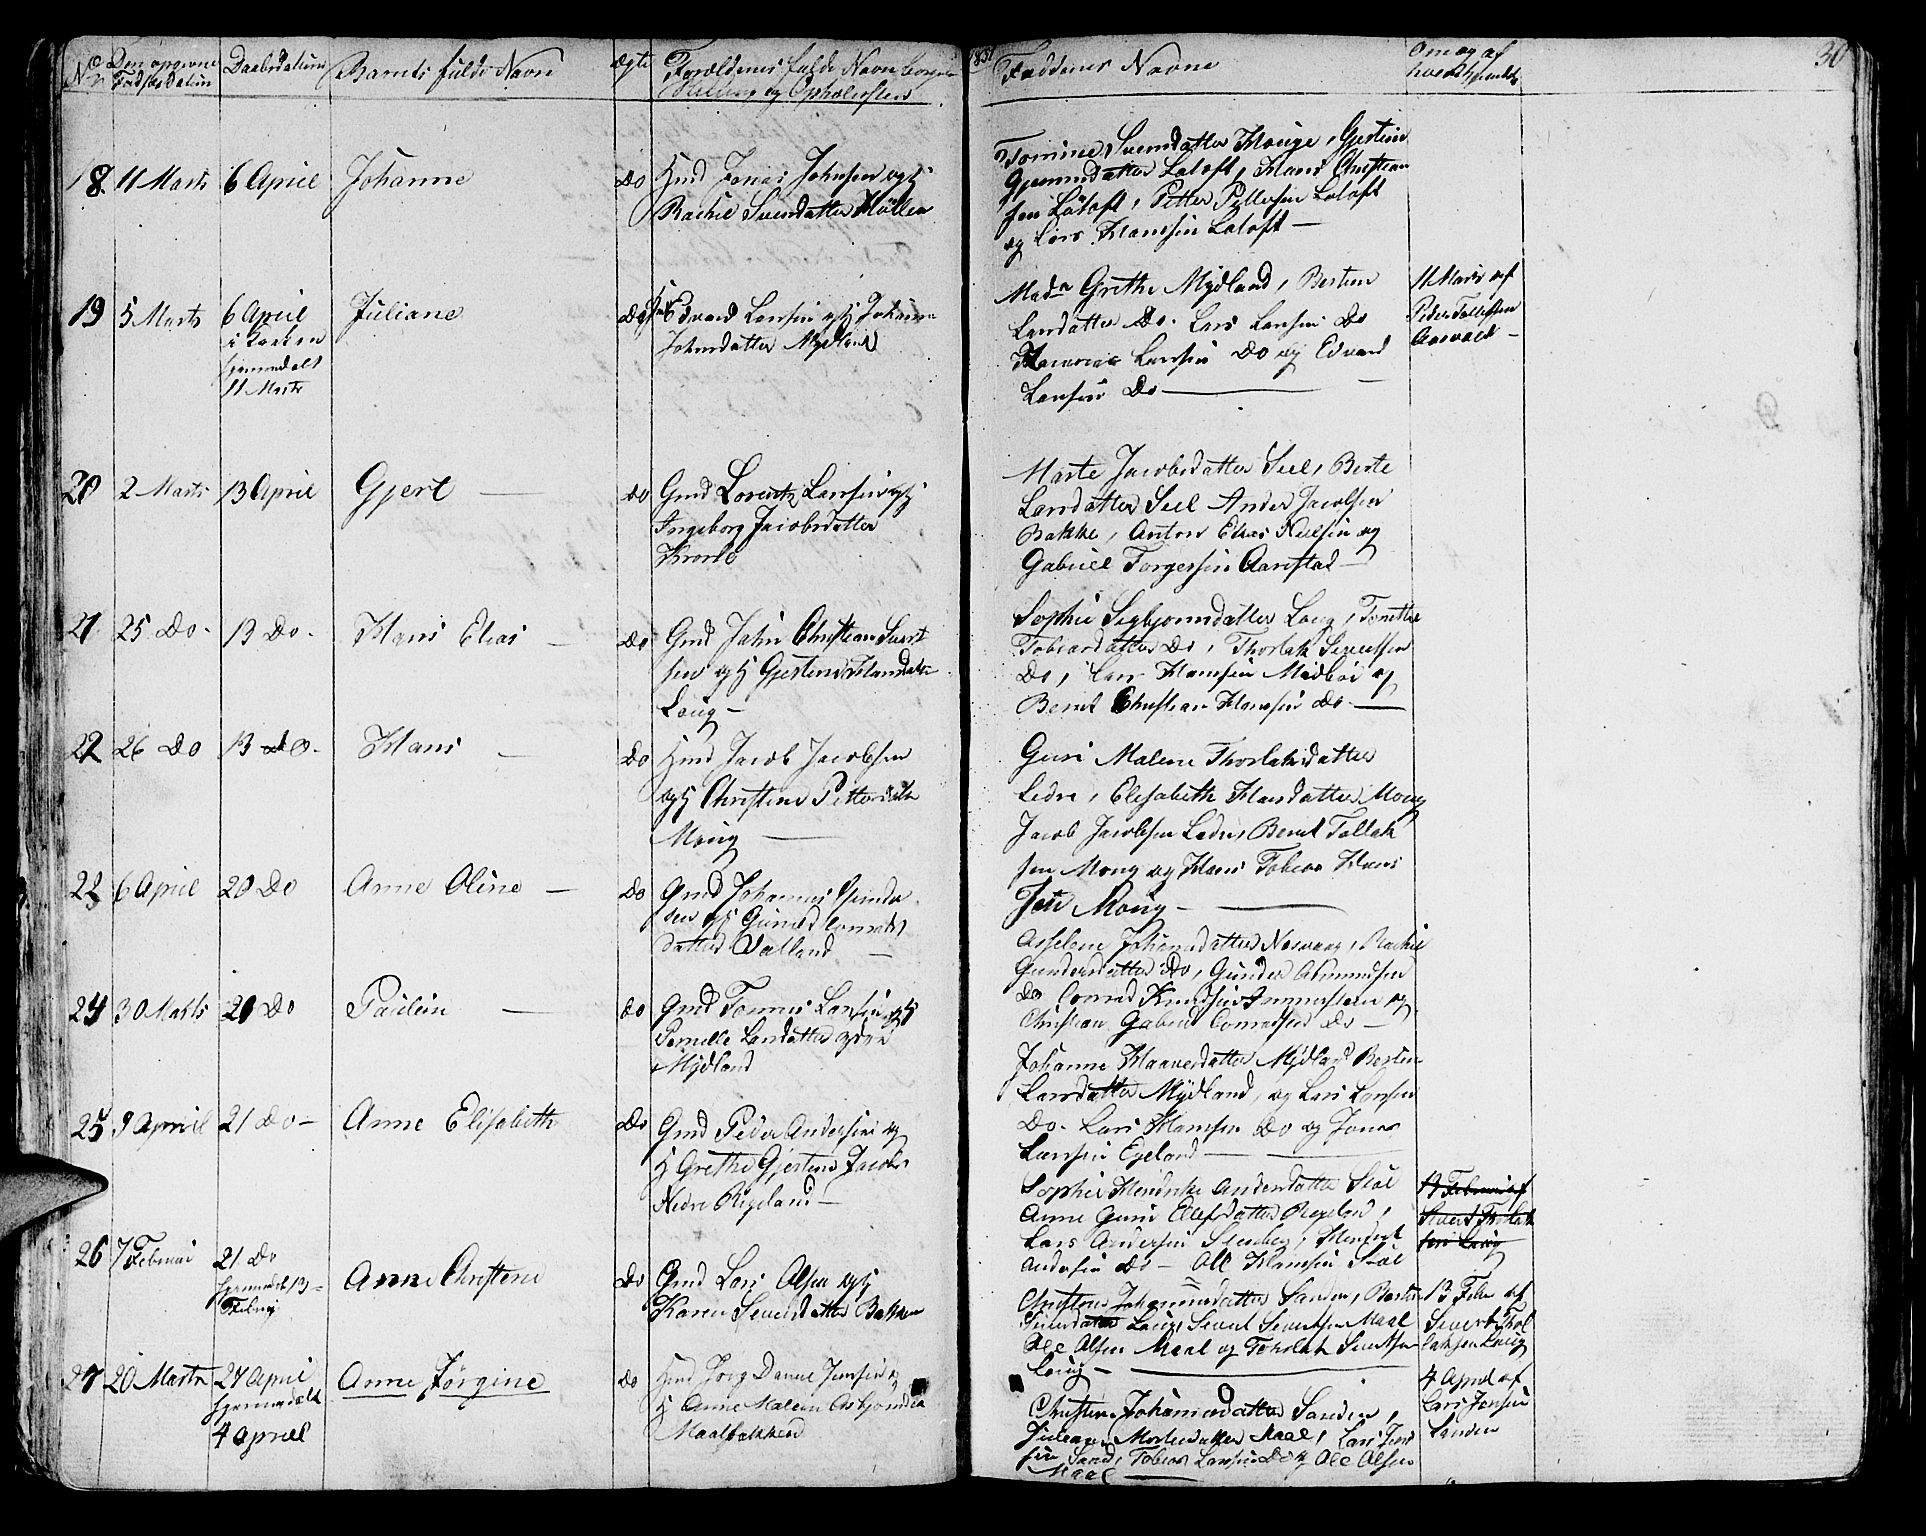 No Den opgivne Daabsdatum Barnets fulde Navn Ægte Forældrenes fulde Navn borger
Fødselsdatum
Stilling og Opholdssted
1831 Faddernes Navne Om og af 30
hvem hjemdøbt
18. 11 Marts 6 April Johanne Do Hmd Jonas Johnsen og H
Rachel Svendsdatter Höllen
Tomine Svendsdatter Houge, Gjertine
Gjermundsdatter Løtoft, Hans Christian
sen Løtoft, Petter Pettersen Løtoft
og Lars Hansen Løtoft —
19 5 Marts 6 April Juliane Do Edvard Larsen og H Johanne
i Kirken
hjemmedøbt
11 Marts
Johnsdatter Mydland
Mad. Grethe Mydland, Bertine
Larsdatter Do. Lars Larsen Do
Larsen Do og Edvard
Larsen Do —
11 Marts af
Peder Tollefsen
Aarvald —
20 2 Marts 13 April Gjert — Do Gmd Lorentz Larsen og H
Ingeborg Jacobsdatter
Marte Jacobsdatter Seel, Berte
Larsdatter Seel Anders Jacobsen
Bakke, Anton Elias Nielsen og
Gabriel Torgersen Aarstad —
21 25 Do. 13 Do. Hans Elias — Do Gmd John Christian Sivert
sen og H Gjertine Hansdatter
Loug —
Sophie Sigbjørnsdatter Loug, Tonette
Tobiasdatter Do, Thorlak Sivertsen
Do, Lars Hansen Midbøe og
Bernt Christian Hansen Do. —
22 26 Do 13 do. Hans — Do Hmd Jacob Jacobsen
og H Christine Pettersdatter
Mong —
Guri Malene Thorlaksdatter
Ledre, Elisabeth Hansdatter Mong
Jacob Jacobsen Ledre, Bernt Tollak
sen Mong og Hans Tobias Hans
sen Mong —
23 6 April 20 Do Anne Oline — Do Gmd Johannes Gunder
sen og H Gunild Conrads
datter Valland —
Asselene Johannesdatter Nesvaag, Rachel
Gundersdatter Do, Gunder Amundsen
Do Conrad Knudsen og
Christian Gabriel Conradsen Do —
24 30 Marts 20 Do Paulin — Do Gmd Tønnes Larsen og H
Pernille Larsdatter
Mydland
Johanne Haaversdatter Mydland Bertine
Larsdatter Mydland, og Lars Larsen
Do. Lars Hansen Do og Jonas
Larsen Egeland —
25 9 April 21 Do — Anne Elisabeth Do Gmd Peder Andersen og
H Grethe Gjertine Jacobs
Nedre Rigeland —
Sophie Hendrikke Andersdatter Stöl
Anne Guri Ellefsdatter Regeland,
Lars Andersen Stenberg, Hendrik
Andersen Do — Ole Hansen Stöl
13 Februar af
Sivert Thorlak
sen Loug
26 7 Februar 21 Do Anne Christine Do Gmd Lars Olsen og H
hjemmedøbt 13
Februar
Karen Sivertsdatter Bakken
Christine Johannesdatter Sanden, Berthe
Loug, Sivert Sivertsen Maal
Ole Olsen Maal og Thorlak Sivertsen
Loug —
13 Febr af
Sivert Thol
laksen Loug
27 20 Marts 27 April Anne Jörgine Do Hmd Jörg Daniel Jensen og
hjemmedøbt
4 April
H Anne Malene Asbjørnsda
Maalsbakken
Christine Johannesdatter Sanden,
Juliane Mortensdatter Maal, Lars Jen
sen Sand, Tobias Larsen Do og Ole Olsen
Maal —
4 April af
Lars Jensen
Sanden